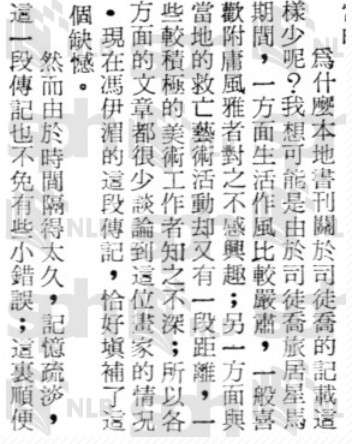 爲什麼本地書刊關於司徒喬的記載這
樣少呢？我想可能是由於司徒喬旅居星馬
期間，一方面生活作風比較嚴肅，一般喜
歡附庸風雅者對之不感興趣；另一方面與
當地的救亡藝術活動却又有一段距離，一
些較積極的美術工作者知之不深；所以各
方面的文章都很少談論到這位畫家的情况
。現在馮伊湄的這段傳記，恰好填補了這
個缺憾。
然而由於時間隔得太久，記憶疏渺，
這一段傳記也不免有些小錯誤；這裏順便